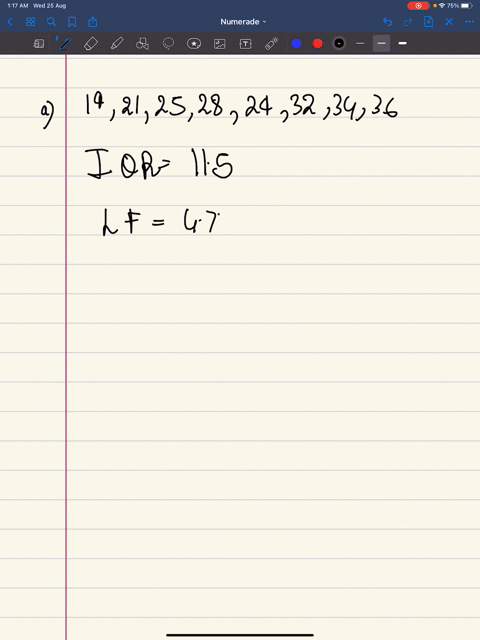 1:17 AM Wed 25 Aug
75%
Numerade
a) 19, 21, 25, 28, 24, 32, 34, 36
IQR= 11.5
LF = 4.7